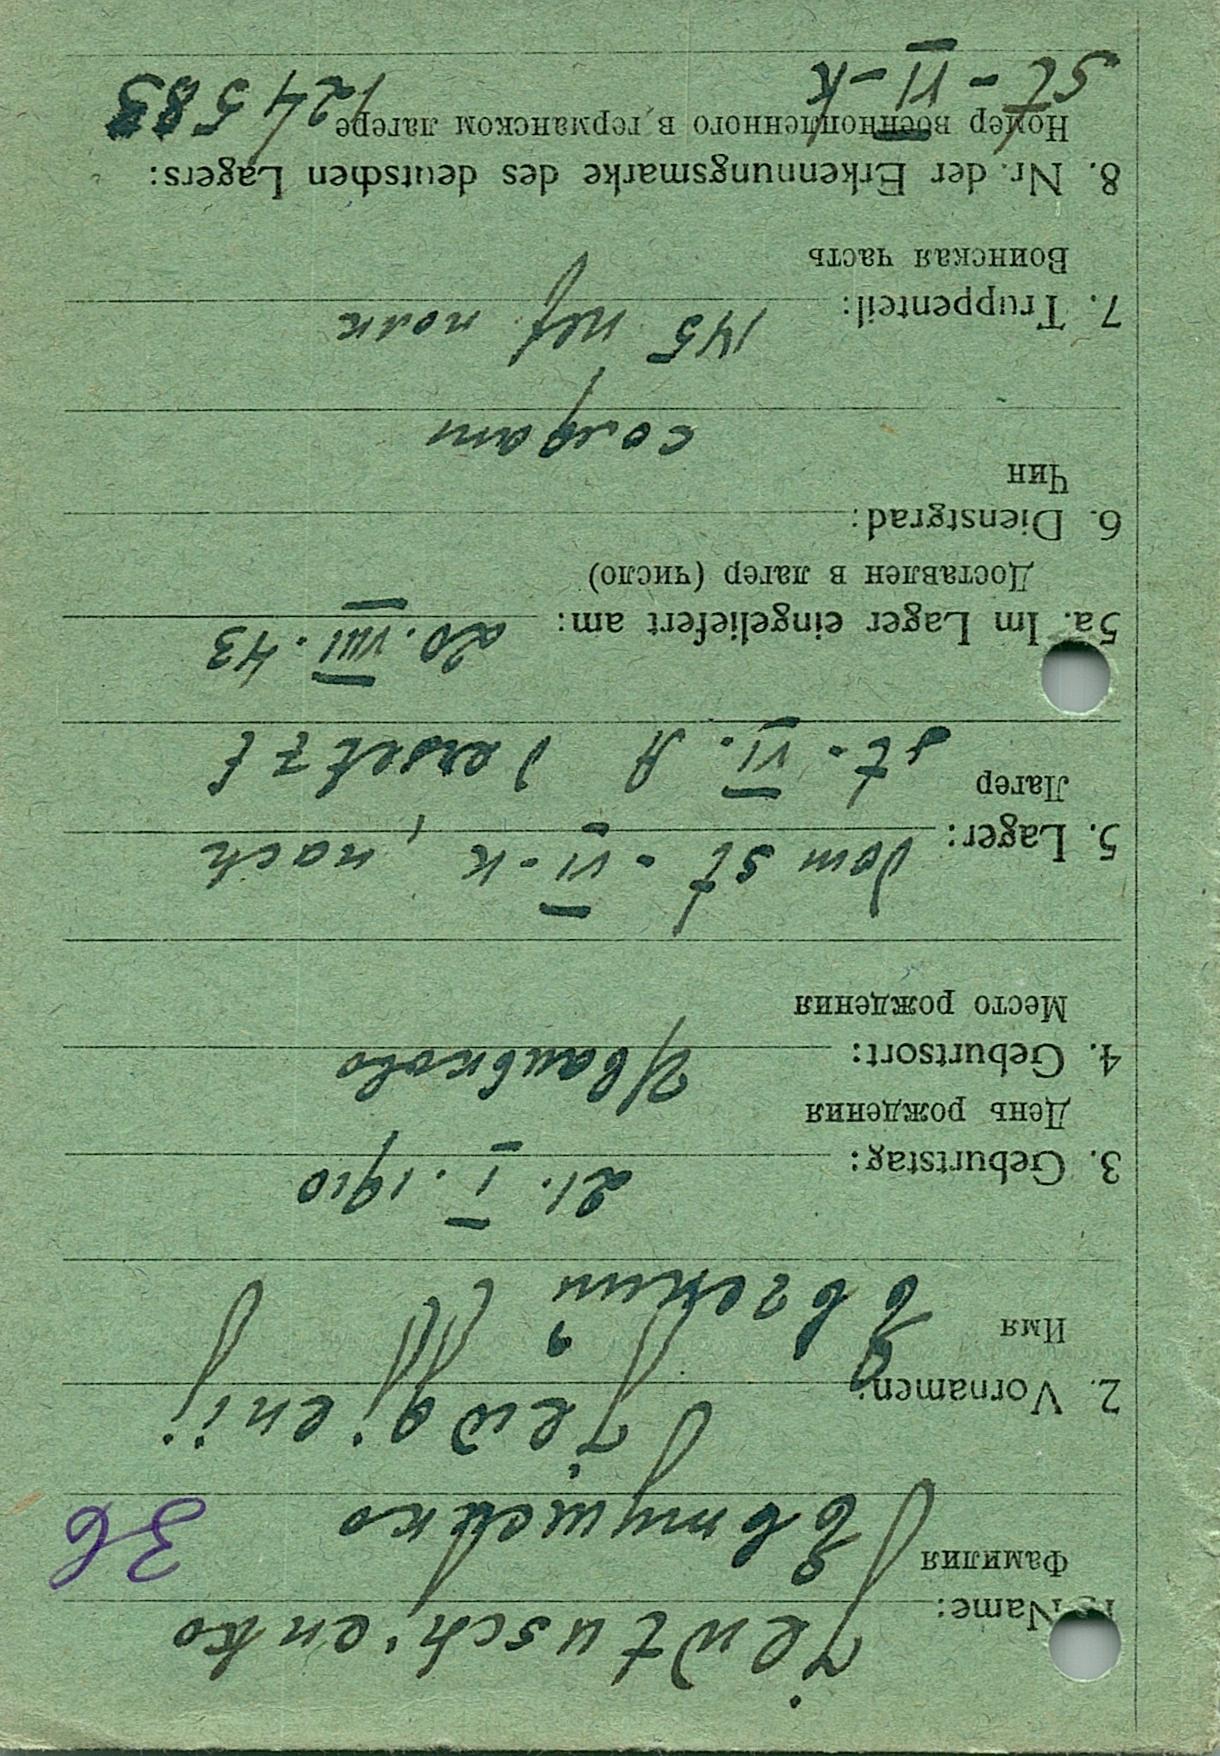 1. Name: Jewtuschenko
Фамилия Евтушенко
36
2. Vornamen: Jewgienij
Имя Евгений
3. Geburtstag: 21. I. 1910
День рождения
4. Geburtsort: Ивашково
Место рождения
5. Lager: Vom St - VI - K, nach
Лагер St - VI. A Versetzt
5a. Im Lager eingeliefert am: 20. VIII. 43
Доставлен в лагер (число)
6. Dienstgrad:
Чин солдат
7. Truppenteil: 145 полк
Воинская часть
8. Nr. der Erkennungsmarke des deutschen Lagers:
Номер военнопленного в германском лагере 124583
St - VI - K